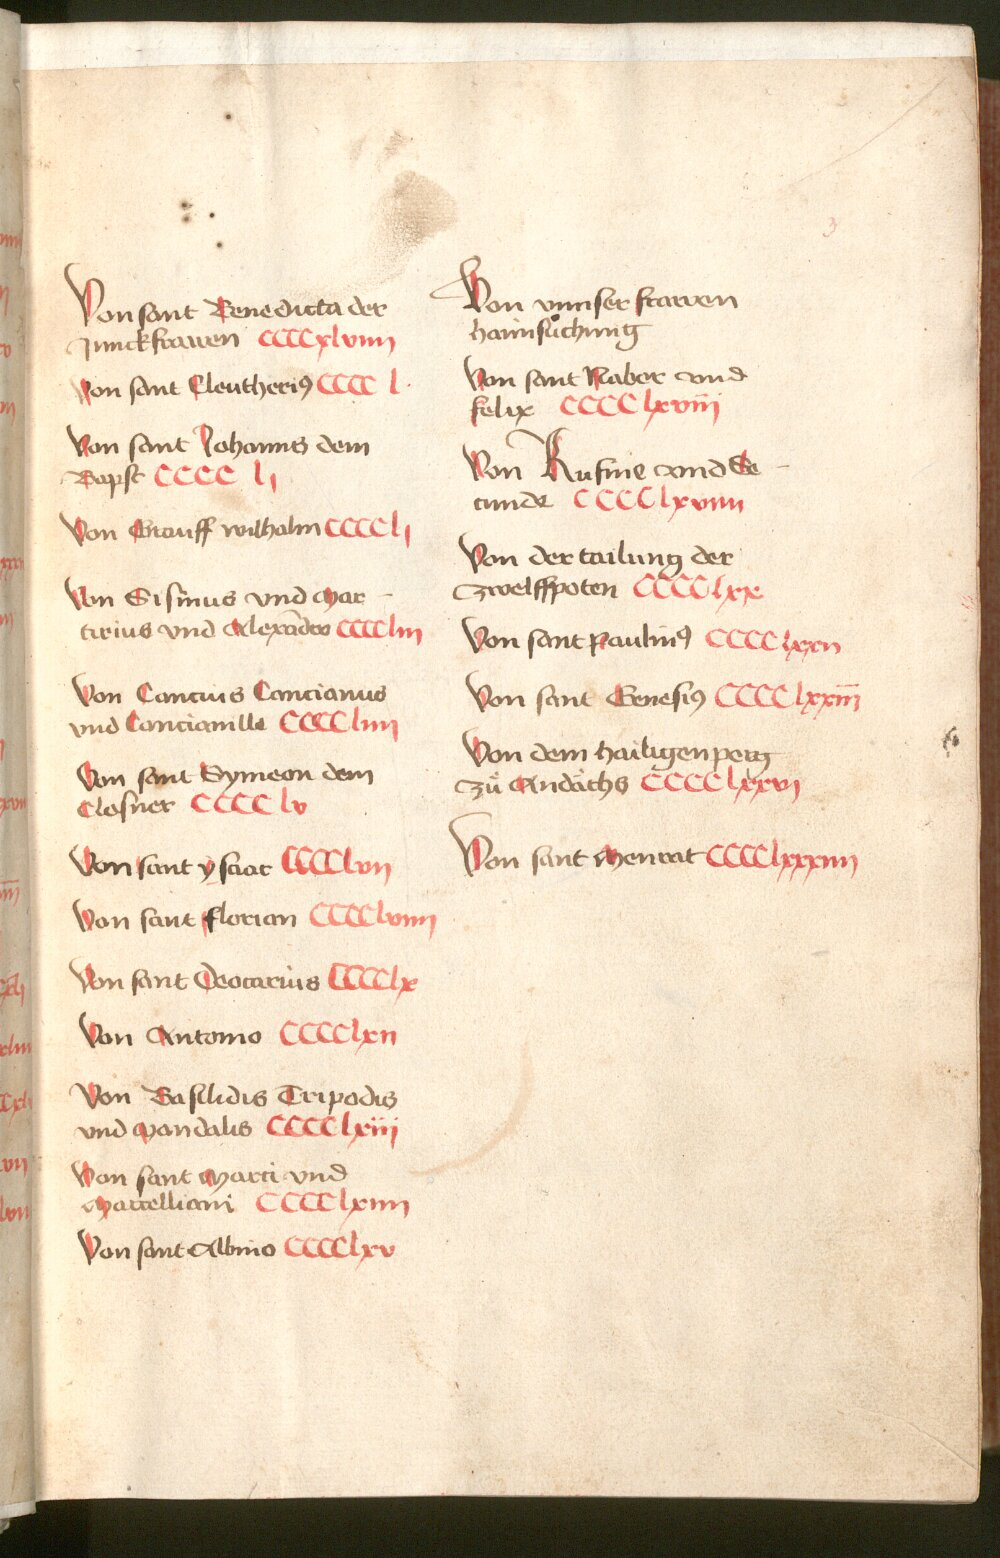 3
Von sant Benedicta der
Junckfrawen CCCCxlviiij
Von sant Eleutheriꝰ CCCC l.
Von sant Johanns dem
Bapst CCCC lj
Von Grauff wilhalm CCCClj
Von Sisinius vnd Mar-
tirius vnd Alexa͂dro CCCCliij
Von Cancius Cancianus
vnd Cancianilla CCCCliiij
Von sant Symeon dem
Closner CCCC lv
Von sant ysaac CCCClvij
Von sant florian CCCClviiij
Von sant Deocarius CCCClx
Von Antonio CCCClxij
Von Basilidis Tripodis
vnd Mandalis CCCClxiij
Von sant Marci vnd
Marcelliani CCCClxiiij
Von sant Albino CCCClxv
Von vnnser frawen
haimsuͦchung
Von sant Nabor vnd
felix CCCClxviij
Von Rufine vnd Se-
cunde CCCClxviiij
Von der tailung der
zwelffpoten CCCClxx
Von sant Pauliniꝰ CCCClxxij
Von sant Genesiꝰ CCCClxxiij
Von dem hailigen perg
zuͦ Andaͤchs CCCClxxvj
Von sant Menrat CCCClxxxiiij